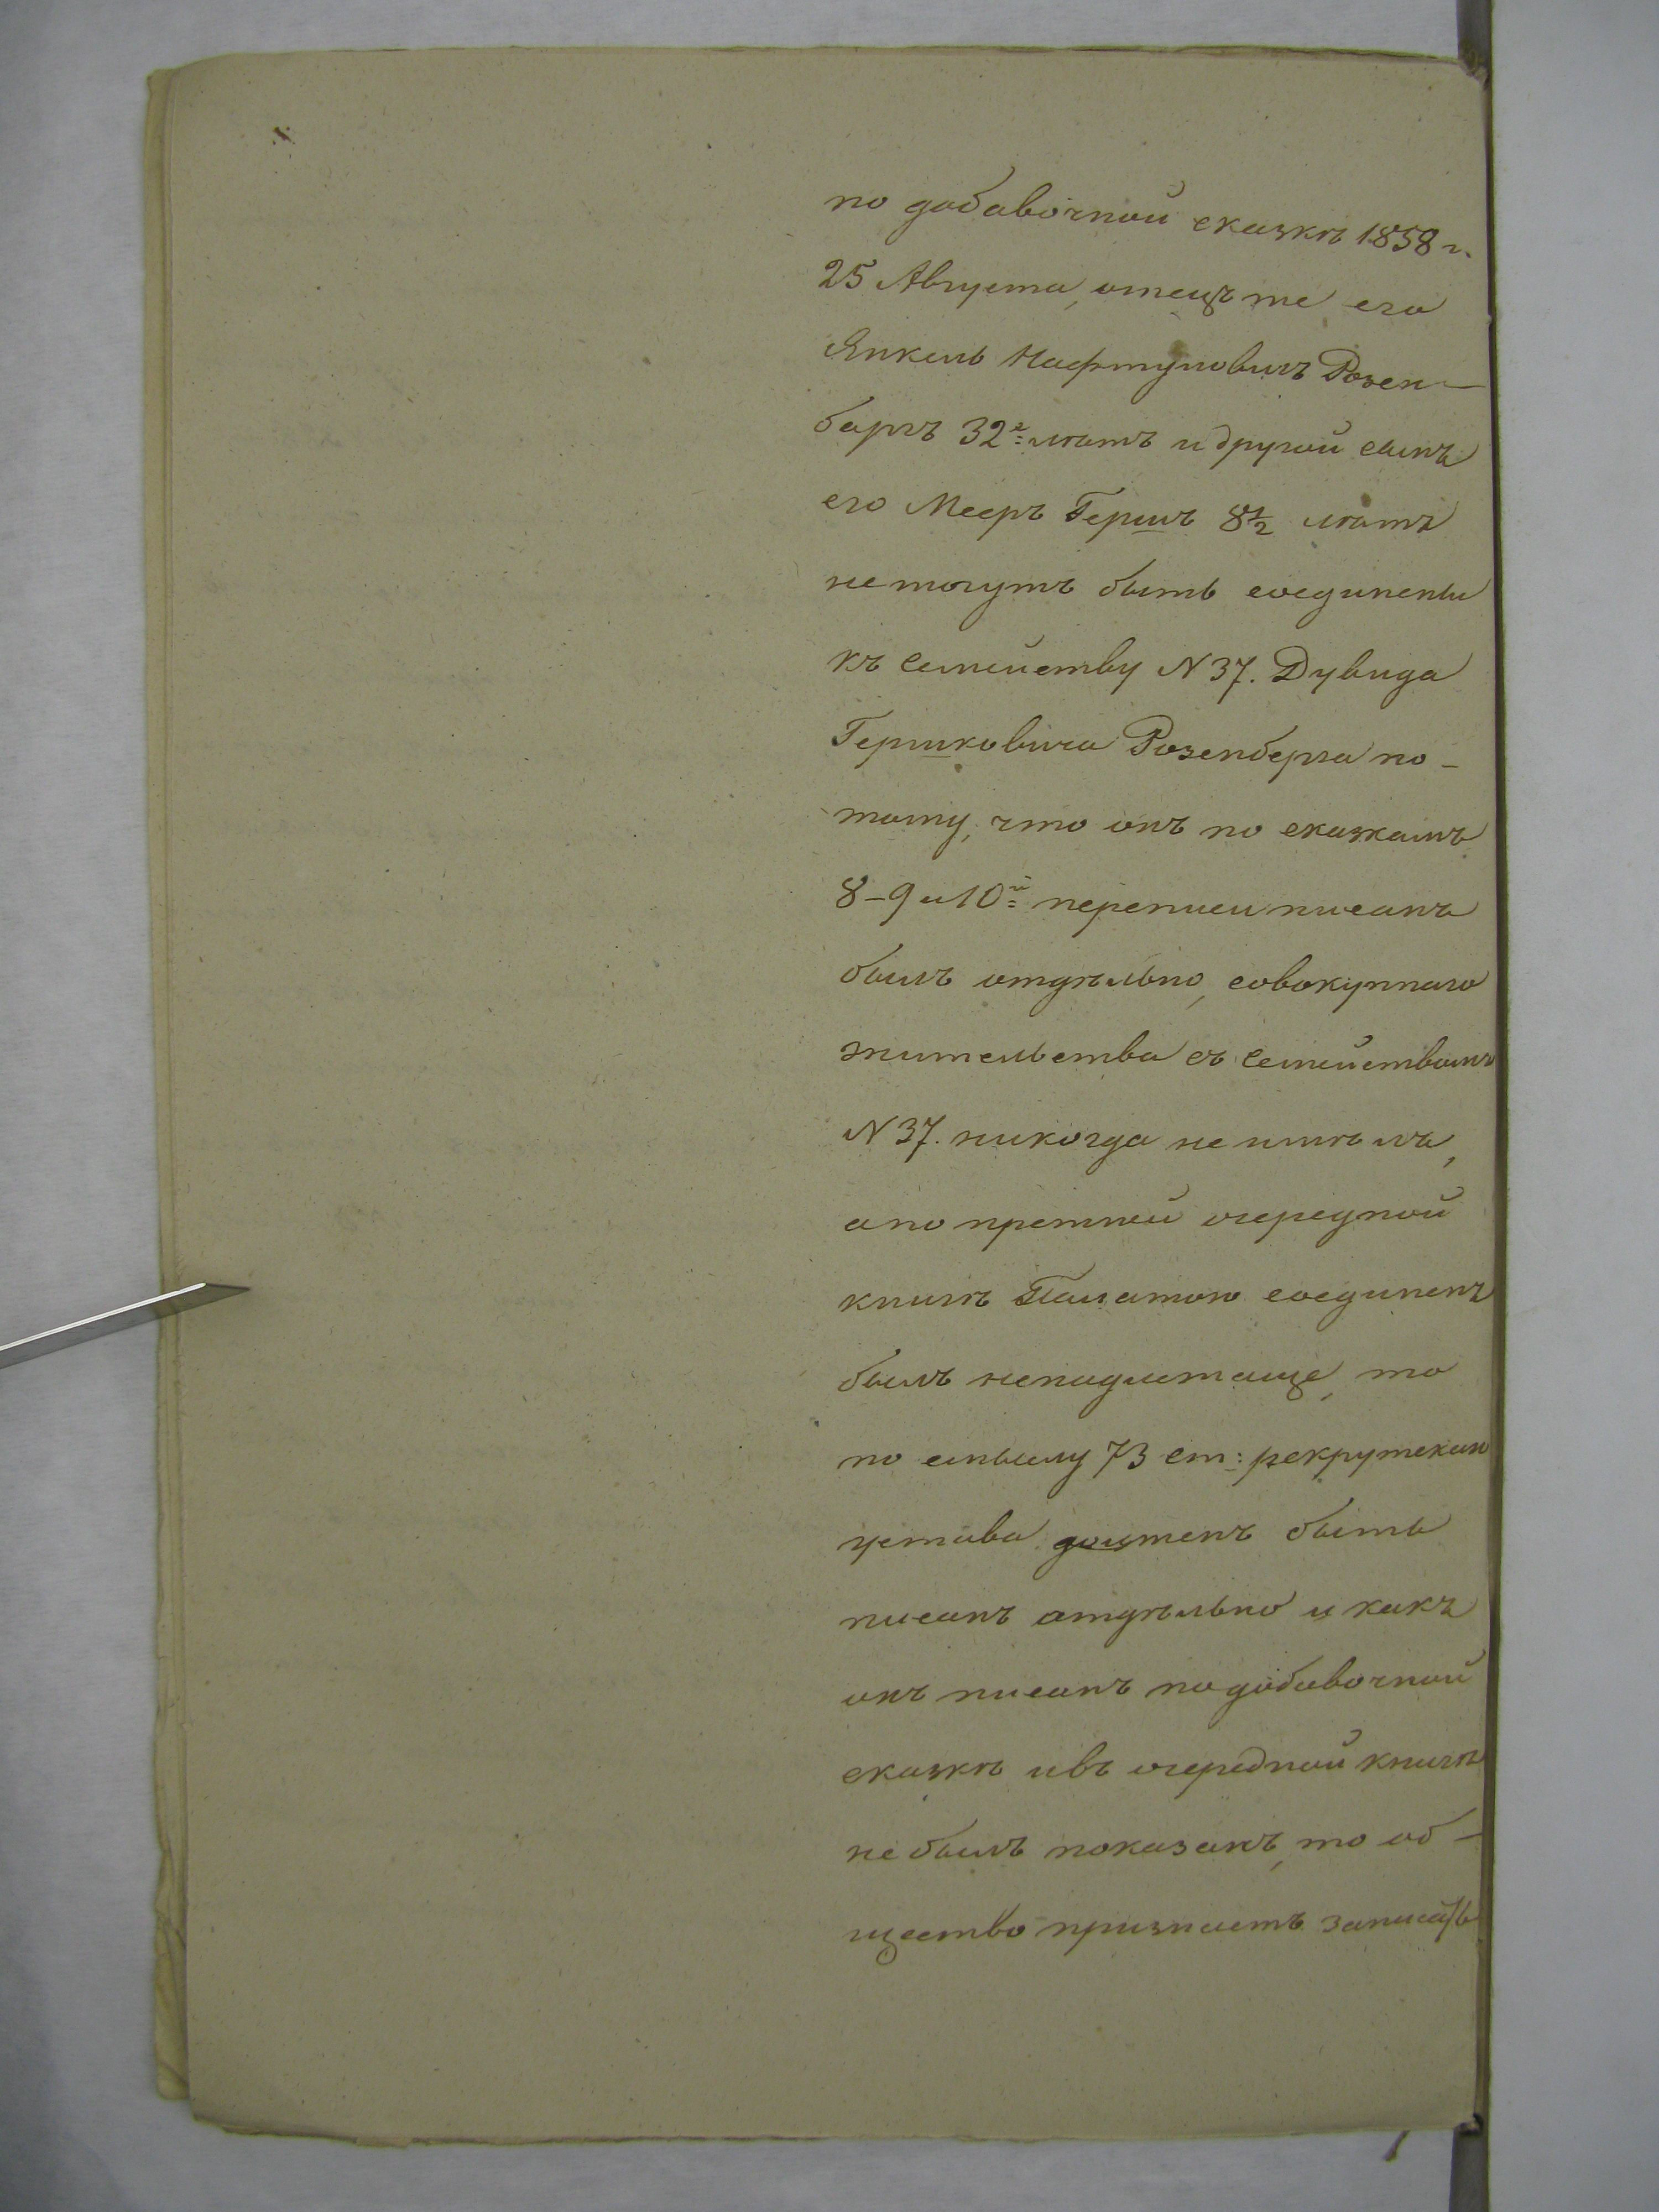 по добавочной сказкѣ 1858 г.
25 Августа, отецъ же его
Янкель Нафтуловичъ Розен-
баргъ 32х лѣтъ и другой сынъ
его Мееръ Гершъ 8½ лѣтъ
не могутъ быть соединены
къ семейству N 37. Дувида
Гершковича Розенберга по-
тому, что онъ по сказкамъ
8-9 и 10й переписи писанъ
былъ отдѣльно, совокупнаго
жительства съ семействомъ
N 37. никогда не имѣлъ,
а по прежней очередной
книгѣ Палатою соединенъ
былъ неподлежаще, то
по смыслу 73 ст: рекрутскаго
устава долженъ быть
писанъ отдѣльно и какъ
онъ писанъ по добавочной
сказкѣ и въ очередной книгѣ
не былъ показанъ, то об-
щество признаетъ записать